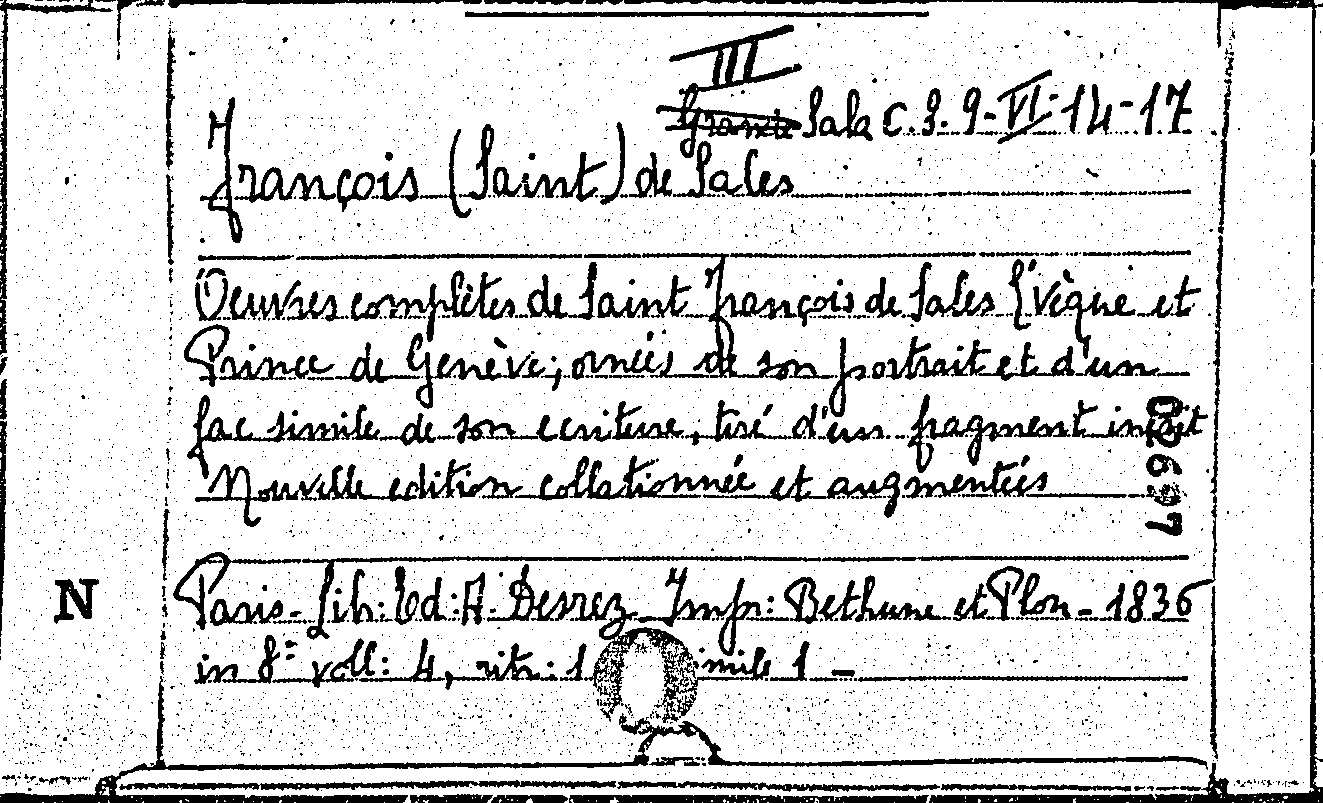 III
Grande Sala C. 9. 9-VI-14-17
François (Saint) de Sales
Oeuvres complètes de Saint François de Sales Évèque et
Prince de Genève; ornées de son portrait et d'un
fac simile de son ecriture, tiré d'un fragment inedit
Nouvelle edition collationnée et augmentées
02697
N
Paris- Lib: Ed: A. Desrez Imp: Bethune et Plon- 1836
in 8º voll: 4, ritr: 1 imile 1 -